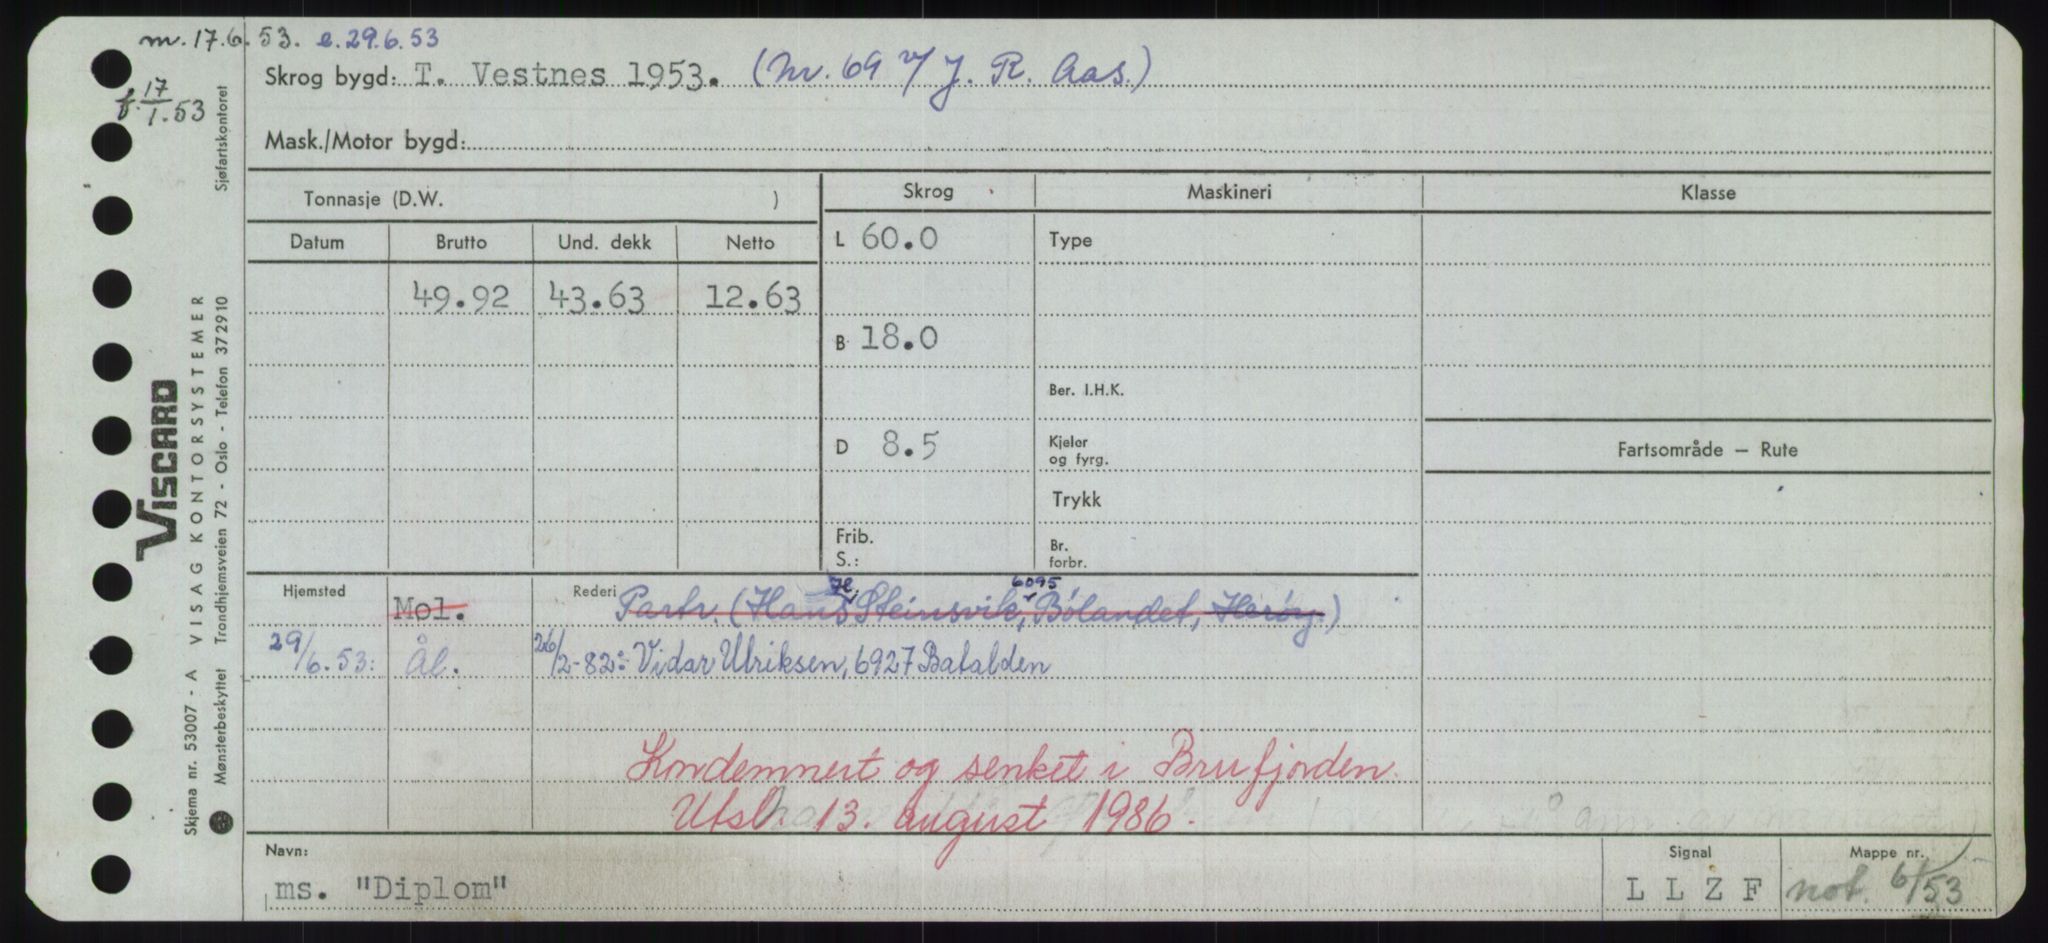 m. 17.6.53. e. 29.6.53
f. 17/1.53
Skrog bygd: T. Vestnes 1953. (Nr. 69 v/ J. R. Aas.)
Mask./Motor bygd:
Tonnasje (D.W. )
Skrog Maskineri Klasse
Datum Brutto Und. dekk Netto
L 60.0 Type
49.92 43.63 12.63
B 18.0
Ber. I.H.K.
D 8.5 Kjeler og fyrg.
Fartsområde – Rute
Trykk
Frib. S.:
Br. forbr.
H. 6095
Hjemsted Mol. Rederi Partr. (Hans Steinsvik, Bølandet, Herøy.)
29/6.53: Ål. 26/2-82: Vidar Ulriksen, 6927 Batalden
Kondemnert og senket i Brufjorden.
Utsl. 13. august 1986.
Navn: Signal Mappe nr.
ms. "Diplom" L L Z F not. 6/53
Viscard
VISAG KONTORSYSTEMER
Skjema nr. 53007 - A
Mønsterbeskyttet Trondhjemsveien 72 - Oslo - Telefon 372910 Sjøfartskontoret